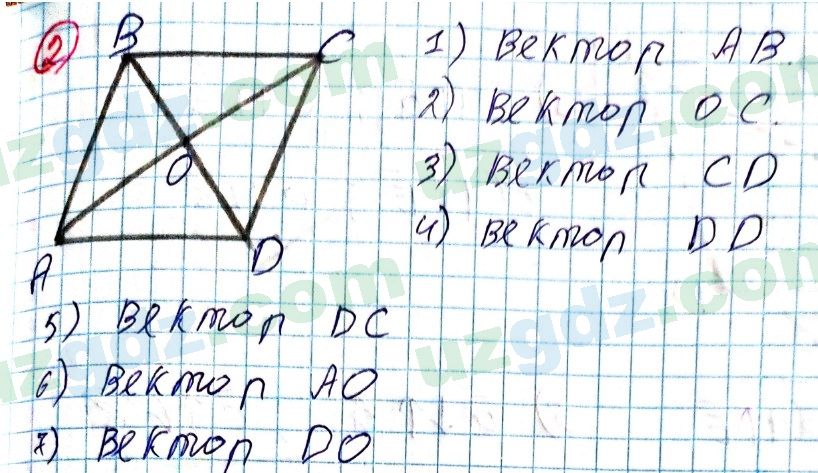 2
B
C
O
A
D
1) Вектор AB.
2) Вектор OC.
3) Вектор CD
4) Вектор DD
5) Вектор DC
6) Вектор AO
7) Вектор DO
uzgdz.com
uzgdz.com
uzgdz.com
uzgdz.com